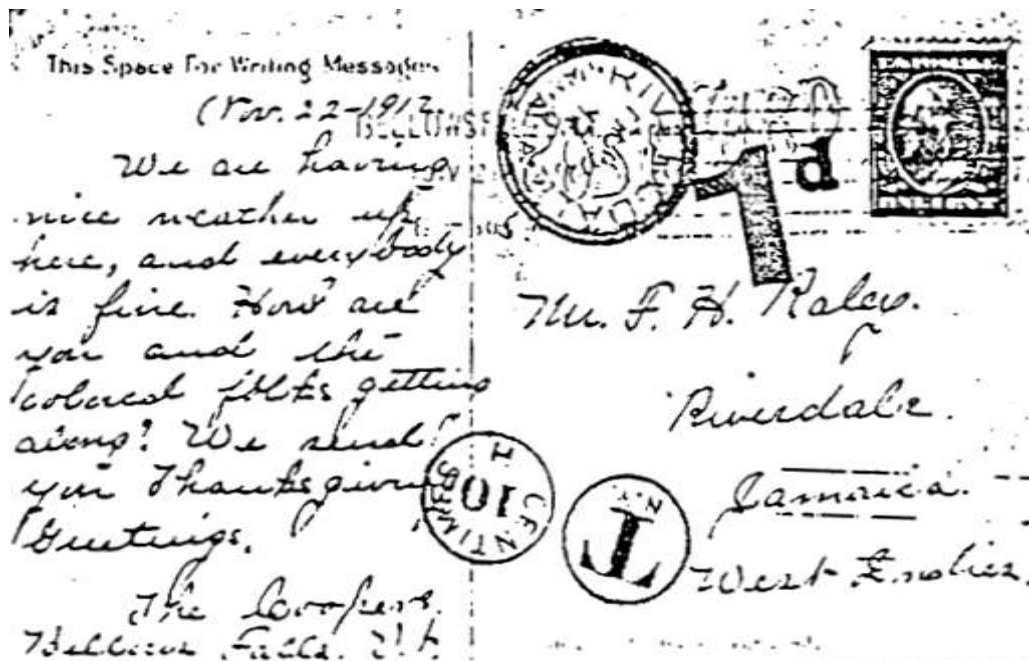 This Space For Writing Messages
Nov. 22-1912
We are having
nice weather up
here, and everybody
is fine. How are
you and the
colored folks getting
along? We send
you Thanksgiving
Greetings.
The Coopers.
Bellows Falls. Vt.
RIVERSDALE
1 d
ONE CENT
Mr. F. H. Raley.
Riverdale.
Jamaica.
West Indies.
10 CENTIMES
T
N.Y.
T